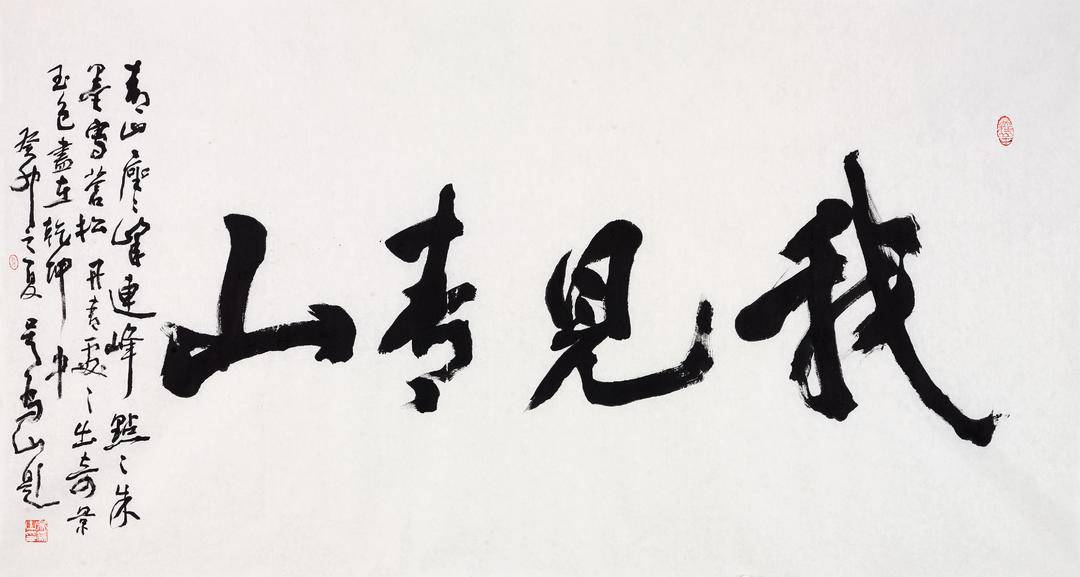 我見青山
青山々峰連峰點々朱
墨寫蒼松丹青處々出奇景
玉色盡在乾坤中
癸卯之夏吴為山題